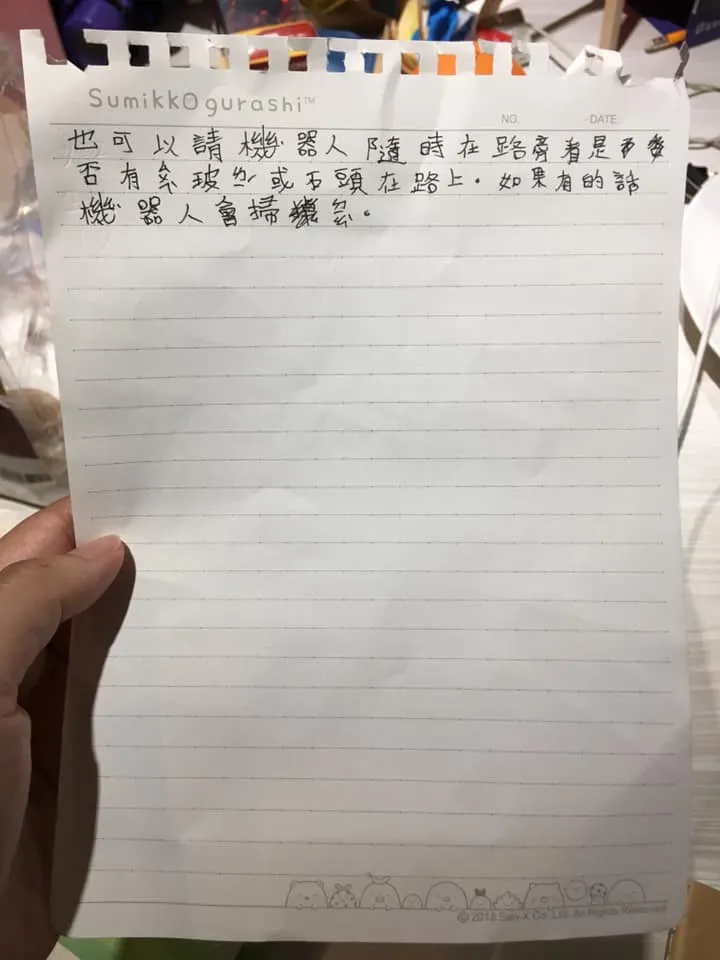 Sumikkogurashi™
NO. DATE.
也可以請機器人隨時在路旁看是
否有 玻 或石頭在路上。如果有的話
機器人會掃 。
© 2018 San-X Co. Ltd. All Rights Reserved.